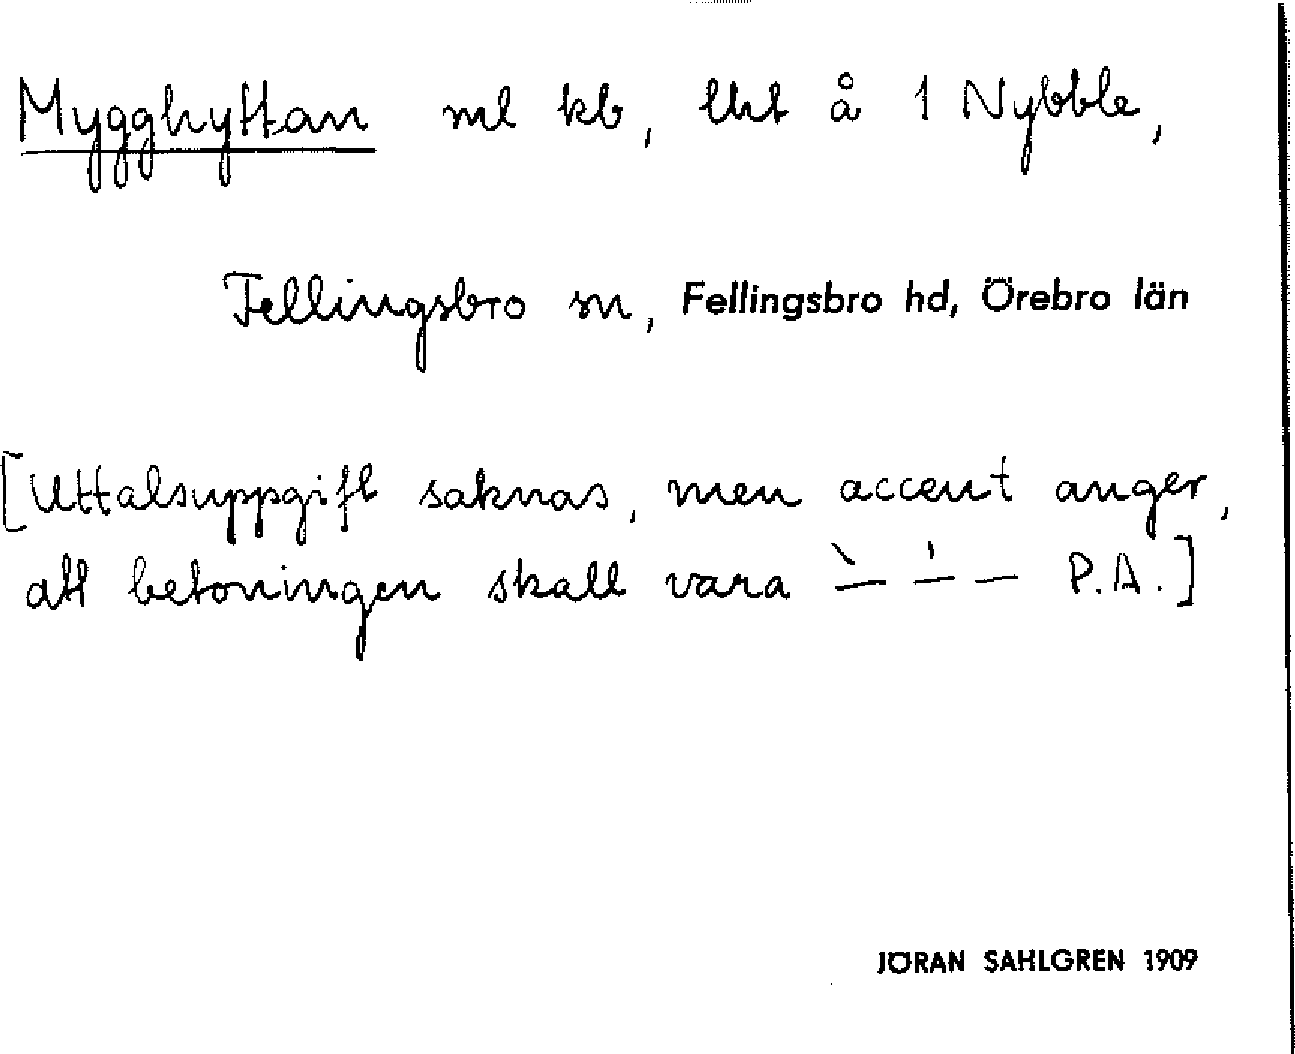 Mygghyttan ml kb, lht å 1 Nybble,
Fellingsbro sn, Fellingsbro hd, Örebro län
[Uttalsuppgift saknas, men accent anger,
att betoningen skall vara `— '— — P.A.]
JÖRAN SAHLGREN 1909